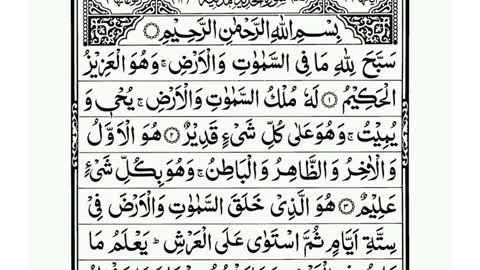 بِسْمِ اللهِ الرَّحْمٰنِ الرَّحِيْمِ
سَبَّحَ لِلّٰهِ مَا فِى السَّمٰوٰتِ وَالْاَرْضِ ۚ وَهُوَ الْعَزِيْزُ
الْحَكِيْمُ ۝١ لَهٗ مُلْكُ السَّمٰوٰتِ وَالْاَرْضِ ۚ يُحْيٖ وَ
يُمِيْتُ ۚ وَهُوَ عَلٰى كُلِّ شَىْءٍ قَدِيْرٌ ۝٢ هُوَ الْاَوَّلُ
وَالْاٰخِرُ وَالظَّاهِرُ وَالْبَاطِنُ ۚ وَهُوَ بِكُلِّ شَىْءٍ
عَلِيْمٌ ۝٣ هُوَ الَّذِىْ خَلَقَ السَّمٰوٰتِ وَالْاَرْضَ فِىْ
سِتَّةِ اَيَّامٍ ثُمَّ اسْتَوٰى عَلَى الْعَرْشِ ؕ يَعْلَمُ مَا